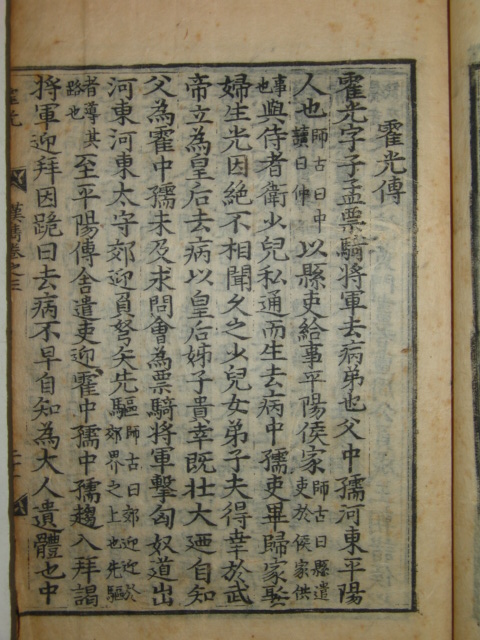 霍光傳
霍光字子孟票騎將軍去病弟也父中孺河東平陽
人也師古曰中讀曰仲以縣吏給事平陽侯家師古曰縣遣吏於侯家供
事也與侍者衛少兒私通而生去病中孺吏畢歸家娶
婦生光因絕不相聞久之少兒女弟子夫得幸於武
帝立為皇后去病以皇后姊子貴幸既壯大廼自知
父為霍中孺未及求問會為票騎將軍擊匈奴道出
河東河東太守郊迎負弩矢先驅師古曰郊迎迎於郊界之上也先驅
者導其路也至平陽傳舍遣吏迎霍中孺中孺趨入拜謁
將軍迎拜因跪曰去病不早自知為大人遺體也中
霍光 漢雋卷之三